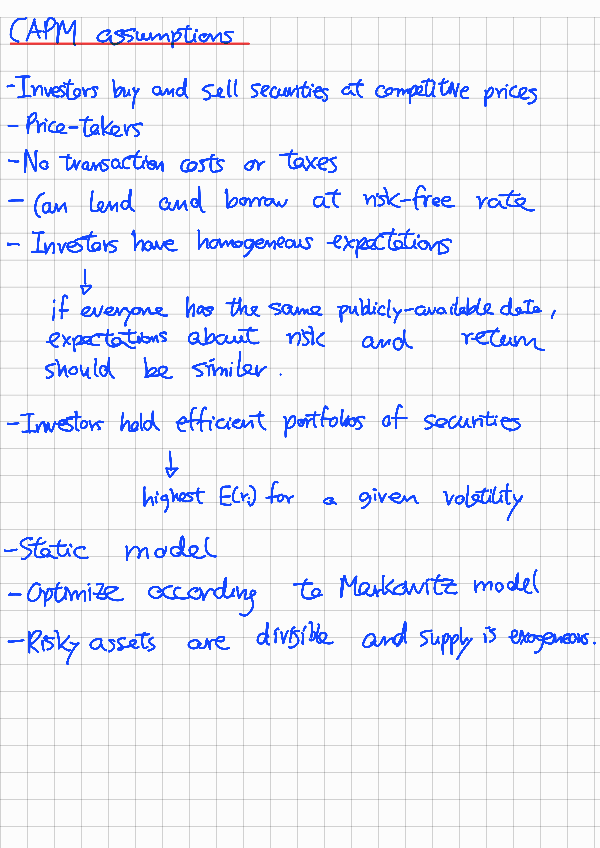 CAPM assumptions
- Investors buy and sell securities at competitive prices
- Price-takers
- No transaction costs or taxes
- Can lend and borrow at risk-free rate
- Investors have homogeneous expectations
↓
if everyone has the same publicly-available data,
expectations about risk and return
should be similar.
- Investors hold efficient portfolios of securities
↓
highest E(ri) for a given volatility
- Static model
- Optimize according to Markowitz model
- Risky assets are divisible and supply is exogeneous.